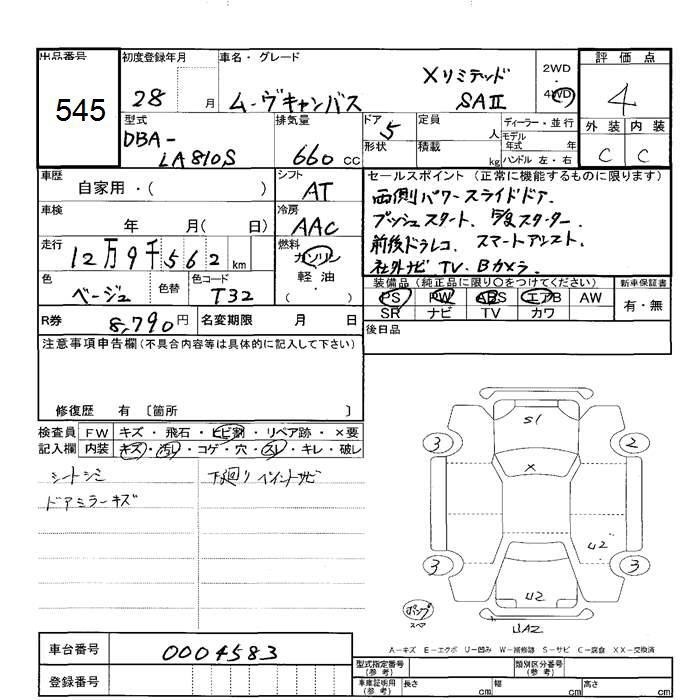 出品番号
545
初度登録年月
28 月
車名・グレード
ムーヴキャンバス
Xリミテッド
SAII
2WD
4WD
評価点
4
外装 内装
C C
型式
DBA-
LA810S
排気量
660 CC
ドア
5
形状
定員
人
積載
kg
ディーラー・並行
モデル
年式 年
ハンドル 左・右
車歴
自家用・( )
シフト
AT
車検
年 月( 日)
冷房
AAC
走行
12万9千562 km
燃料
ガソリン
軽油
( )
色
ベージュ
色替
色コード
T32
R券
8,790円
名変期限 月 日
セールスポイント (正常に機能するものに限ります)
両側パワースライドドア.
プッシュスタート.
前後ドラレコ. スマートアシスト.
社外ナビ TV. Bカメラ.
装備品(純正品に限り○をつけてください)
PS PW ABS エアB AW
SR ナビ TV カワ
新車保証書
有・無
後日品
注意事項申告欄(不具合内容等は具体的に記入して下さい)
修復歴 有 〔箇所 〕
検査員 FW キズ・飛石・ヒビ割・リペア跡・×要
記入欄 内装 キズ・汚レ・コゲ・穴・スレ・キレ・破レ
シートシミ
ドアミラーキズ
下廻り ペイントサビ
S1
3
2
X
U2
3
3
U2
パンク
スペア
UA2
A-キズ E-エクボ U-凹み W-補修跡 S-サビ C-腐食 XX-交換済
車台番号
0004583
登録番号
型式指定番号
(参考)
類別区分番号
(参考)
車庫証明用
(参考)
長さ cm
幅 cm
高さ cm